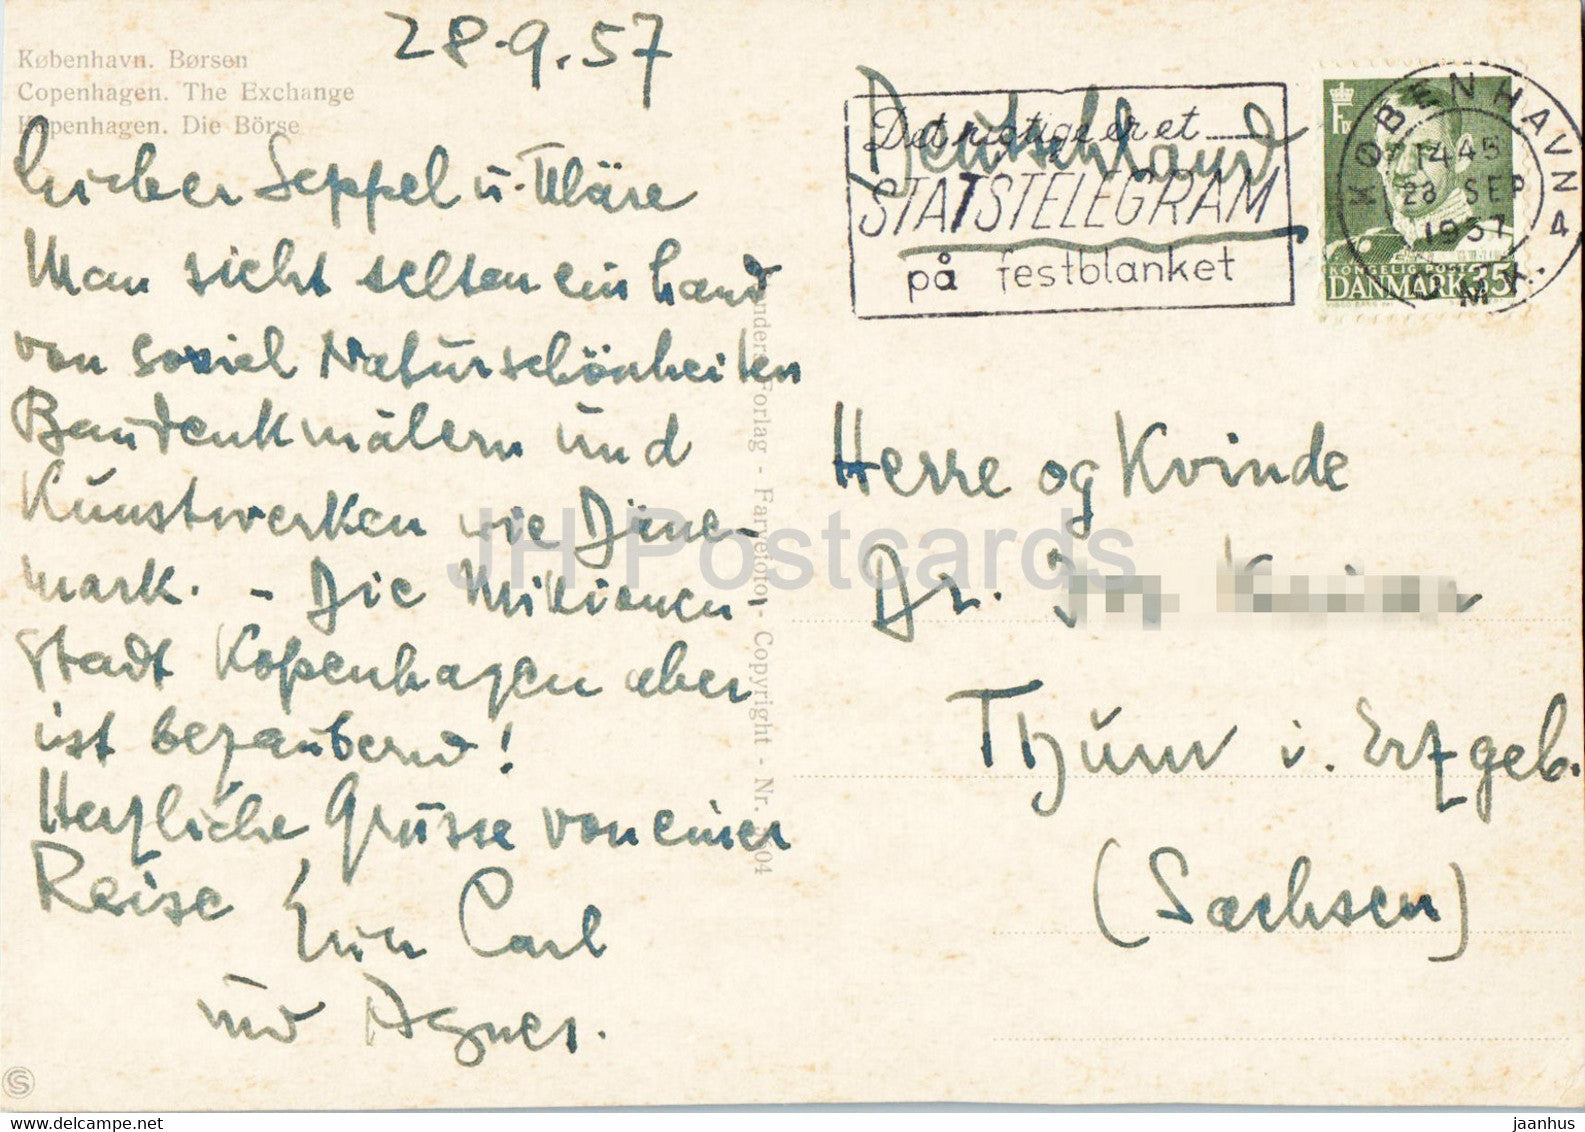 28.9.57
København. Børsen
Copenhagen. The Exchange
Kopenhagen. Die Börse
Lieber Seppel u. Kläre
Man sieht selten ein Land
von soviel Naturschönheiten
Baudenkmälern und
Kunstwerken wie Däne-
mark. - Die Millionen-
stadt Kopenhagen aber
ist bezaubernd!
Herzliche Grüsse von einer
Reise Euer Carl
und Agnes.
Forlag - Farvefoto - Copyright - Nr.
Deutschland
Det rigtige er et
STATSTELEGRAM
på festblanket
KØBENHAVN 4
1445
28 SEP
1957
OMK.
KONGELIG POST
DANMARK 35
Herre og Kvinde
Dr.
Thum i. Erzgeb.
(Sachsen)
JH Postcards
jaanhus
www.delcampe.net